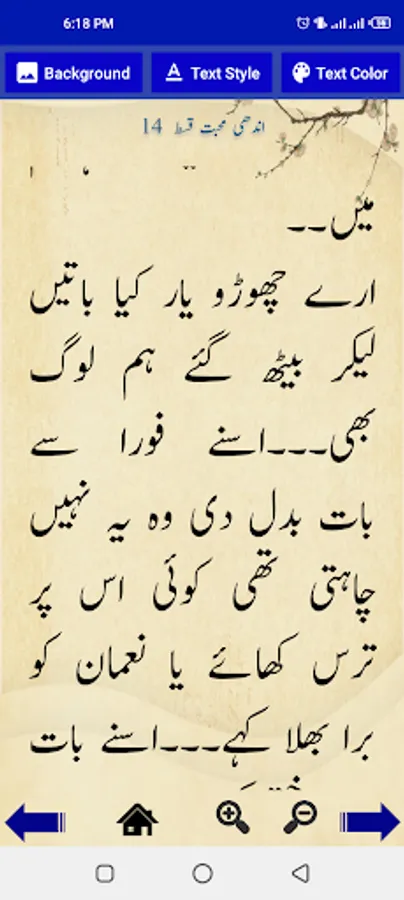 6:18 PM
Background
Text Style
Text Color
اندھی محبت قسط 14
میں۔۔
ارے چھوڑو یار کیا باتیں
لیکر بیٹھ گئے ہم لوگ
بھی۔۔۔اسنے فورا سے
بات بدل دی وہ یہ نہیں
چاہتی تھی کوئی اس پر
ترس کھائے یا نعمان کو
برا بھلا کہے۔۔۔اسنے بات